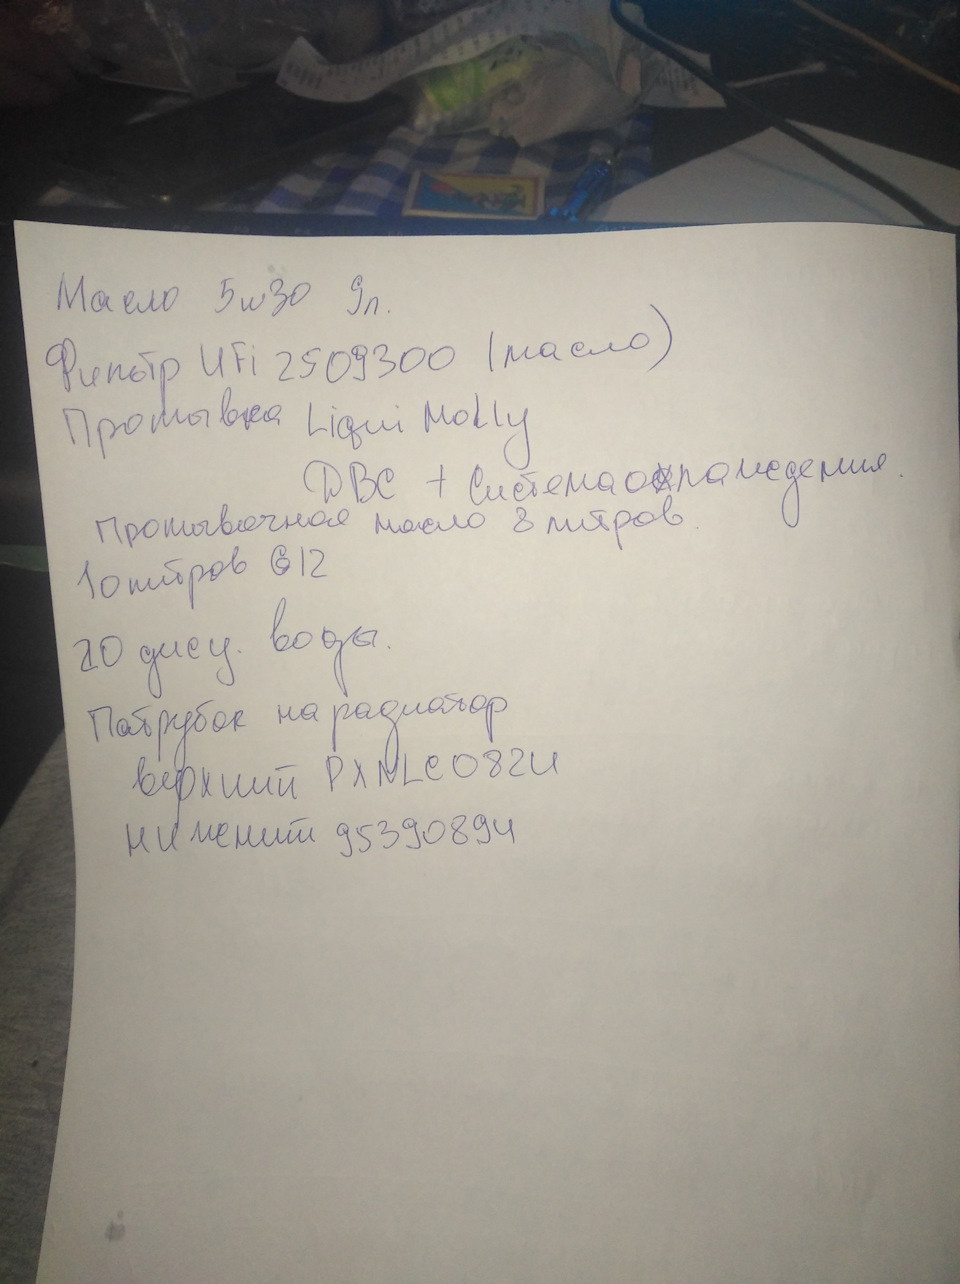 Масло 5w30 9л.
Фильтр UFi 2509300 (масло)
Промывка Liqui Molly
ДВС + Система охлаждения.
Промывочная масло 8 литров.
10 литров G12
20 дисц. воды.
Патрубок на радиатор
верхний PXNLC082U
нижний 95390894